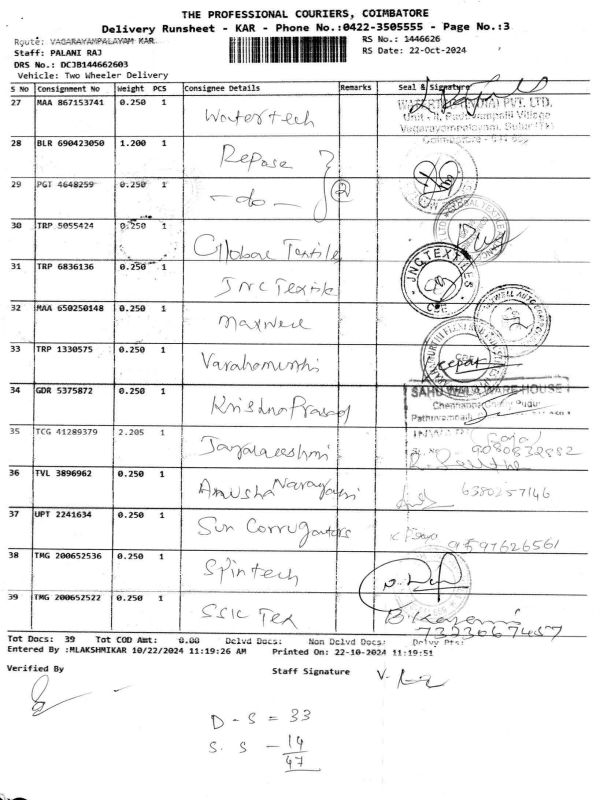 THE PROFESSIONAL COURIERS, COIMBATORE
Delivery Runsheet - KAR - Phone No.:0422-3505555 - Page No.:3
Route: VAGARAYAMPALAYAM KAR
RS No.: 1446626
Staff: PALANI RAJ
RS Date: 22-Oct-2024
DRS No.: DCJB144662603
Vehicle: Two Wheeler Delivery
S No Consignment No Weight PCS Consignee Details Remarks Seal & Signature
27 MAA 867153741 0.250 1 Watertech
(INDIA) PVT. LTD.
28 BLR 690423050 1.200 1 Repose
29 PGT 4648259 0.250 1 - do - 2
30 TRP 5055424 0.250 1 Global Textile
31 TRP 6836136 0.250 1 JNC Textile
JNC TEXTILES
CBE
32 MAA 650250148 0.250 1 Maxwell
33 TRP 1330575 0.250 1 Varahamurthi
34 GDR 5375872 0.250 1 Krishna Prasad
SAHUWALA WARE HOUSE
35 TCG 41289379 2.205 1 Jayalakshmi
9080832882
36 TVL 3896962 0.250 1 Anusha Narayani
6380257146
37 UPT 2241634 0.250 1 Sun Corrugators
9597626561
38 TMG 200652536 0.250 1 Spintech
39 TMG 200652522 0.250 1 SSIC Tex
7323067457
Tot Docs: 39 Tot COD Amt: 0.00 Delvd Docs: Non Delvd Docs: Delvy Pts:
Entered By :MLAKSHMIKAR 10/22/2024 11:19:26 AM Printed On: 22-10-2024 11:19:51
Verified By
Staff Signature
D - S = 33
S. S - 14
47